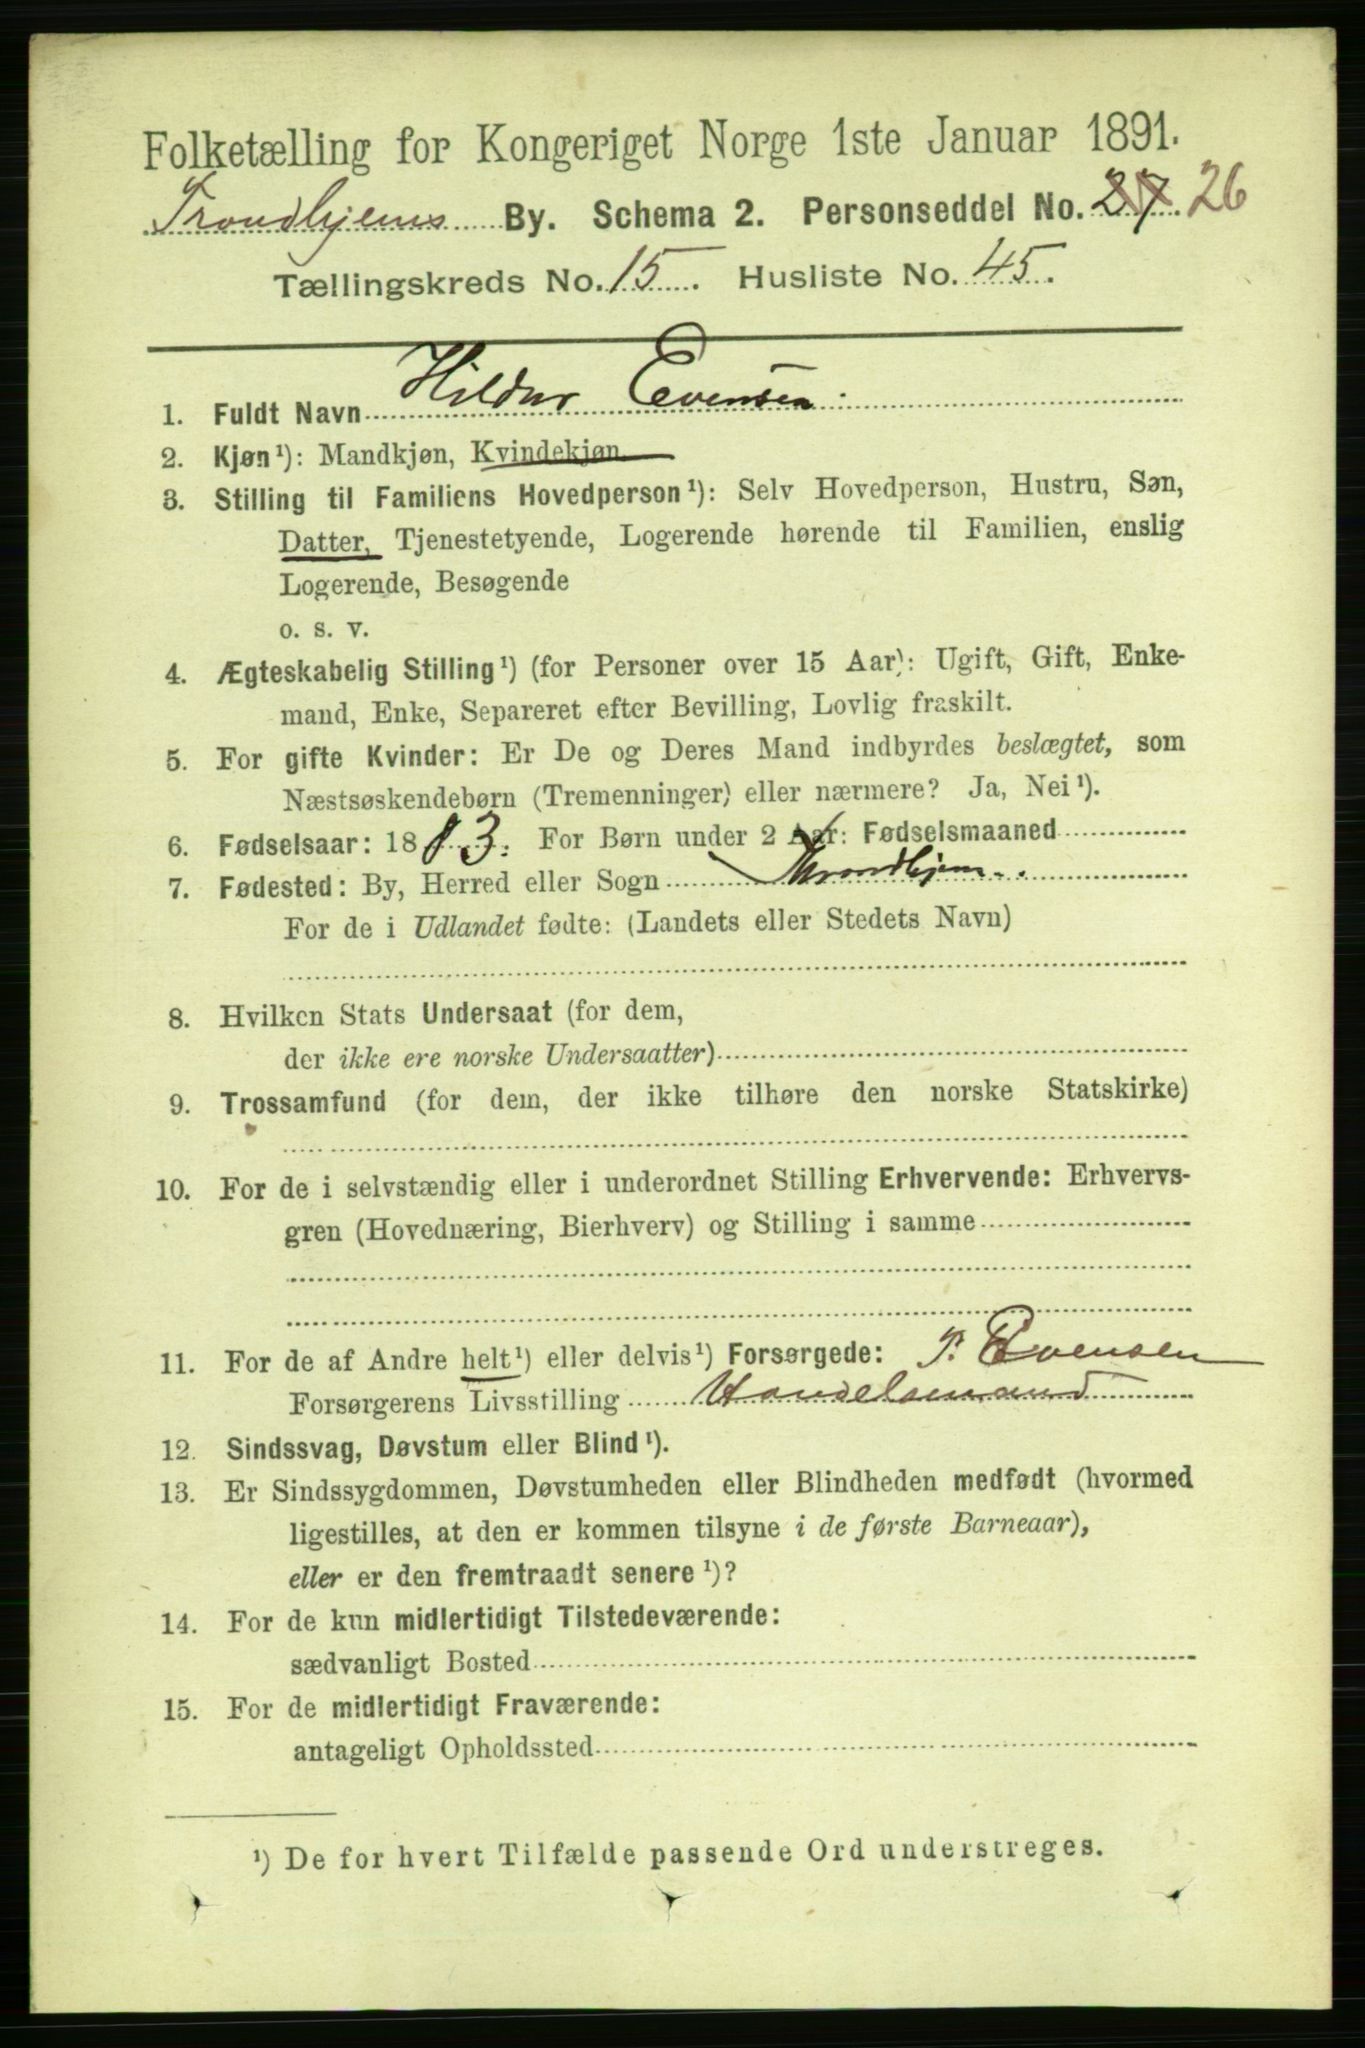 Folketælling for Kongeriget Norge 1ste Januar 1891.
Trondhjems By. Schema 2. Personseddel No. 27. 26
Tællingskreds No. 15. Husliste No. 45.
1. Fuldt Navn Hildur Evensen.
2. Kjøn¹): Mandkjøn, Kvindekjøn.
3. Stilling til Familiens Hovedperson¹): Selv Hovedperson, Hustru, Søn,
Datter, Tjenestetyende, Logerende hørende til Familien, enslig
Logerende, Besøgende
o. s. v.
4. Ægteskabelig Stilling¹) (for Personer over 15 Aar): Ugift, Gift, Enke-
mand, Enke, Separeret efter Bevilling, Lovlig fraskilt.
5. For gifte Kvinder: Er De og Deres Mand indbyrdes beslægtet, som
Næstsøskendebørn (Tremenninger) eller nærmere? Ja, Nei¹).
6. Fødselsaar: 1883. For Børn under 2 Aar: Fødselsmaaned
7. Fødested: By, Herred eller Sogn Trondhjem.
For de i Udlandet fødte: (Landets eller Stedets Navn)
8. Hvilken Stats Undersaat (for dem,
der ikke ere norske Undersaatter)
9. Trossamfund (for dem, der ikke tilhøre den norske Statskirke)
10. For de i selvstændig eller i underordnet Stilling Erhvervende: Erhvervs-
gren (Hovednæring, Bierhverv) og Stilling i samme
11. For de af Andre helt¹) eller delvis¹) Forsørgede: P. Evensen
Forsørgerens Livsstilling Handelsmand
12. Sindssvag, Døvstum eller Blind¹).
13. Er Sindssygdommen, Døvstumheden eller Blindheden medfødt (hvormed
ligestilles, at den er kommen tilsyne i de første Barneaar),
eller er den fremtraadt senere¹)?
14. For de kun midlertidigt Tilstedeværende:
sædvanligt Bosted
15. For de midlertidigt Fraværende:
antageligt Opholdssted
¹) De for hvert Tilfælde passende Ord understreges.